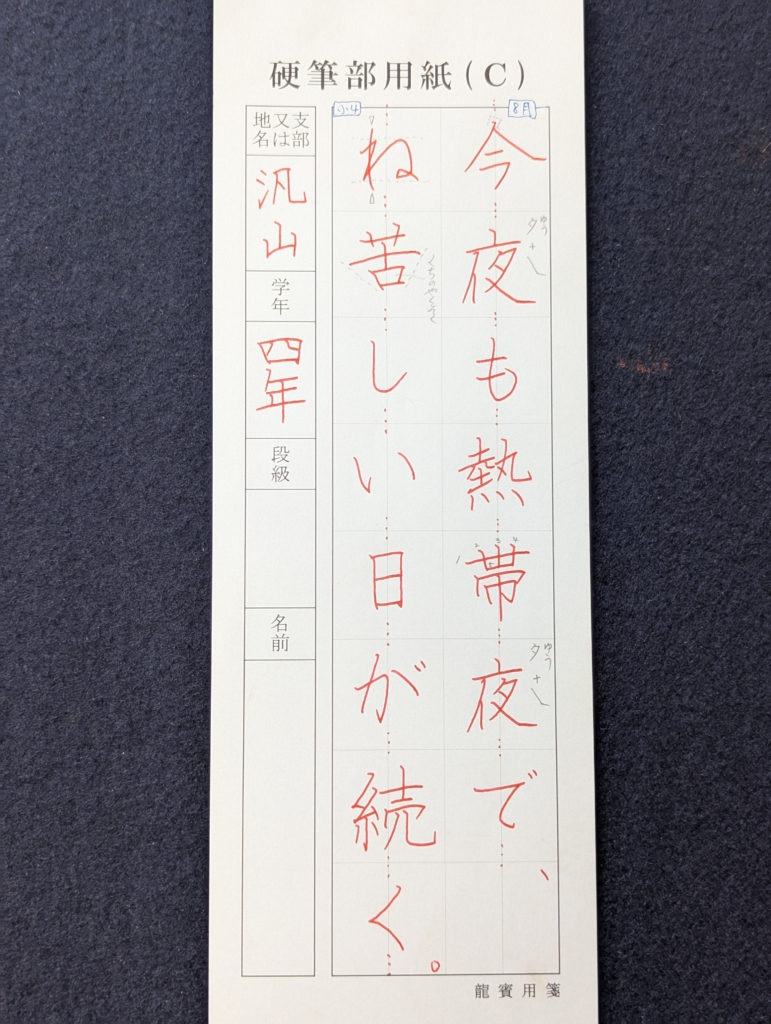 硬筆部用紙(C)
8月
今夜も熱帯夜で、
ゆう
夕+乀
ゆう
夕+乀
1 2 3 4
小4
ね苦しい日が続く。
くちのやくそく
支部又は地名
汎山
学年
四年
段級
名前
龍賓用箋